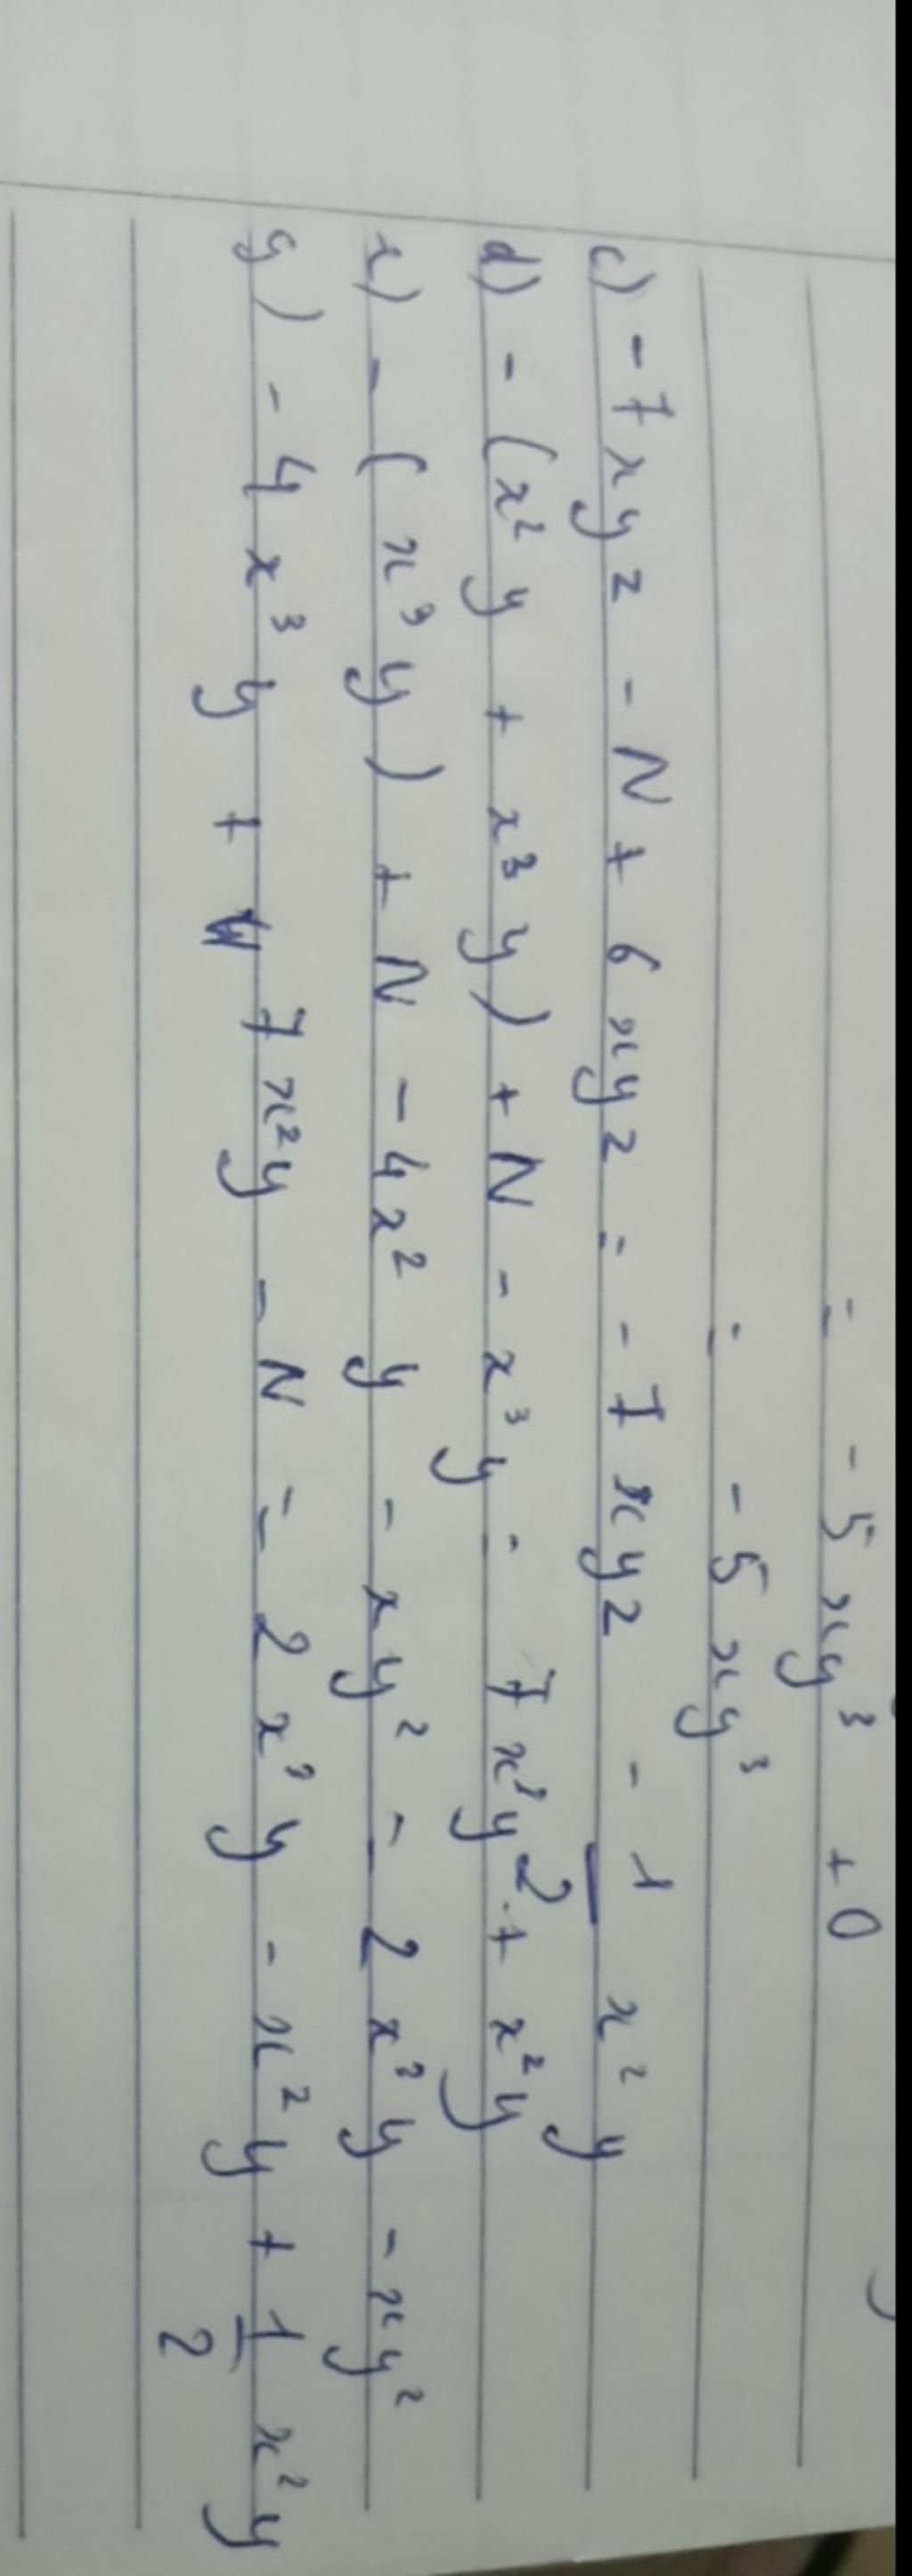 = -5xy³ + 0
= -5xy³
c) -7xyz - N + 6xyz = -7xyz - 1/2 x²y
d) -(x²y + x³y) + N - x³y = 7x³y + x²y
e) -(x³y) + N - 4x²y - xy² = 2x³y - xy²
g) -4x³y + 7x²y - N = 2x³y - x²y + 1/2 x²y